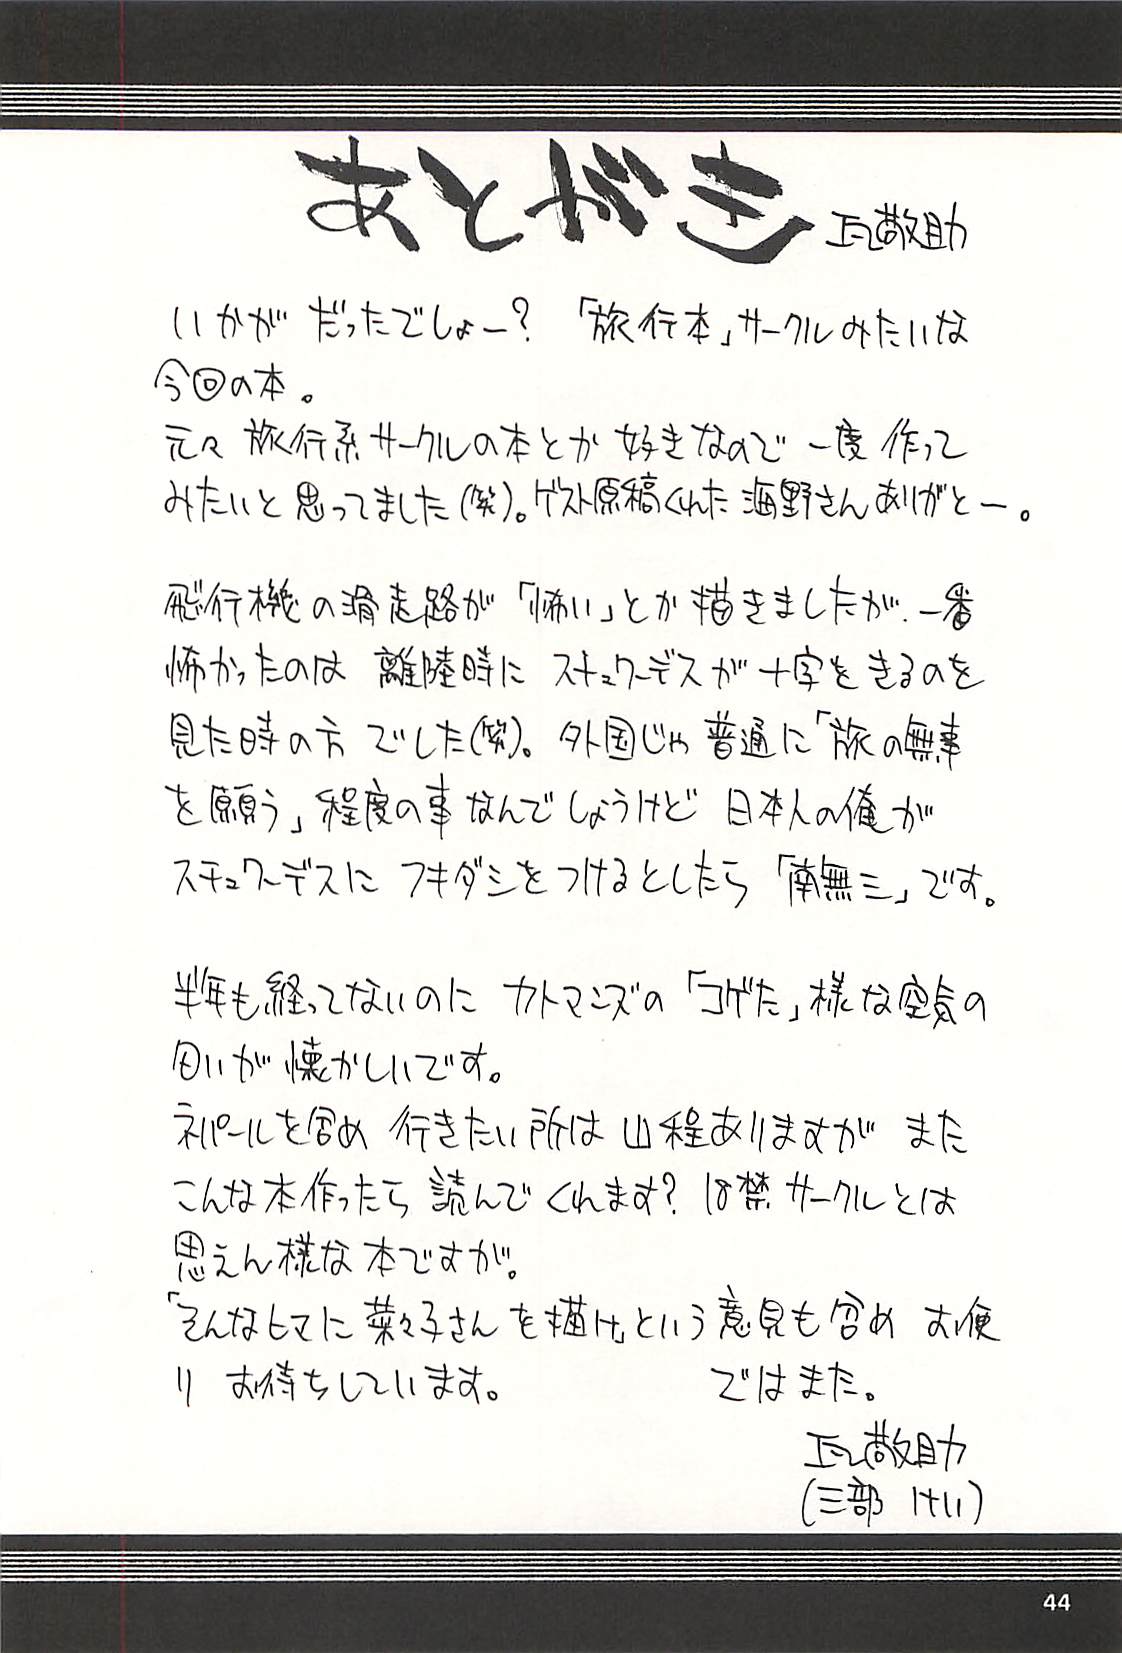 あとがき 瓦敬助
いかが だったでしょー? 「旅行本」サークルみたいな
今回の本。
元々 旅行系サークルの本とか 好きなので 一度 作って
みたいと思ってました(笑)。ゲスト原稿くれた 海野さんありがとー。
飛行機の滑走路が「怖い」とか描きましたが、一番
怖かったのは 離陸時に スチュワーデスが十字をきるのを
見た時の方 でした(笑)。外国じゃ 普通に「旅の無事
を願う」程度の事なんでしょうけど 日本人の俺が
スチュワーデスに フキダシをつけるとしたら「南無三」です。
半年も経ってないのに カトマンズの「コゲた」様な空気の
匂いが 懐かしいです。
ネパールを含め 行きたい所は 山程ありますが また
こんな本作ったら 読んでくれます? 18禁サークルとは
思えん様な 本ですが。
「そんなヒマに 菜々子さんを描け」という意見も含め お便
り お待ちしています。 ではまた。
瓦敬助
(三部 けい)
44